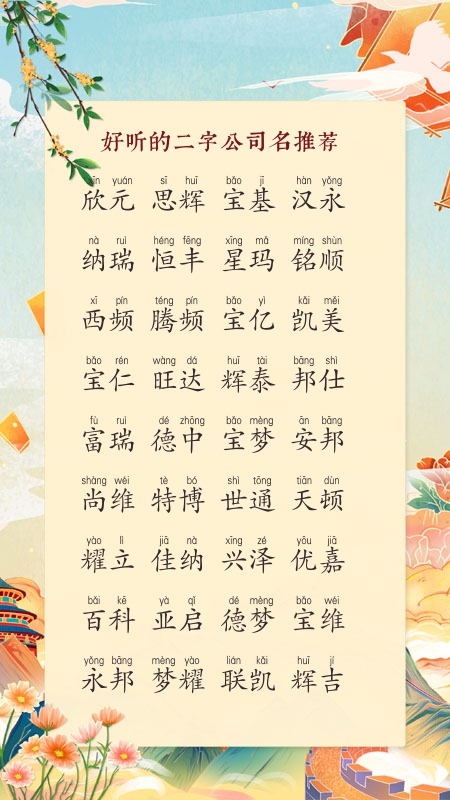 好听的二字公司名推荐
xīn yuán sī huī bǎo jī hàn yǒng
欣元 思辉 宝基 汉永
nà ruì héng fēng xīng mǎ míng shùn
纳瑞 恒丰 星玛 铭顺
xī pín téng pín bǎo yì kǎi měi
西频 腾频 宝亿 凯美
bǎo rén wàng dá huī tài bāng shì
宝仁 旺达 辉泰 邦仕
fù ruì dé zhōng bǎo mèng ān bāng
富瑞 德中 宝梦 安邦
shàng wéi tè bó shì tōng tiān dùn
尚维 特博 世通 天顿
yào lì jiā nà xīng zé yōu jiā
耀立 佳纳 兴泽 优嘉
bǎi kē yà qǐ dé mèng bǎo wéi
百科 亚启 德梦 宝维
yǒng bāng mèng yào lián kǎi huī jí
永邦 梦耀 联凯 辉吉